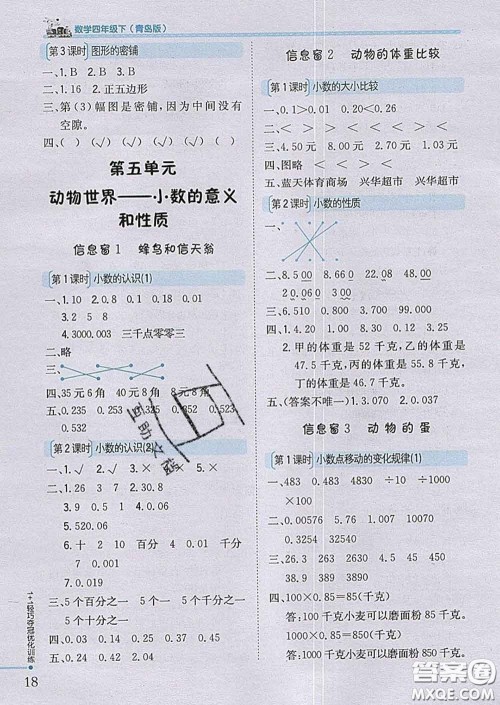 数学四年级下（青岛版）
第3课时 图形的密铺
一、1.B 2.B
二、1.16 2.正五边形
三、第（3）幅图是密铺，因为中间没有
空隙。
四、（ ）（√）（√）（√）（ ）（√）
第五单元
动物世界——小数的意义
和性质
信息窗1 蜂鸟和信天翁
第1课时 小数的认识(1)
一、1.10 2.0.8 0.1 3.18 0.18
3.2 5 8
4.3000.003 三千点零零三
二、略
三、
四、35元6角 40元8角 8元8角
五、0.235 0.253 0.325 0.352 0.523
0.532
第2课时 小数的认识(2)
一、1.√ 2.√ 3.× 4.× 5.×
二、1.0.4 0.04 0.004
3.9.4 0.009
5.520.06
三、1.十 2.10 十 百分 4 0.01
7.0.019
三、5个百分之一 5个一 5个千分之一
5个十分之一
五、0.24 0.05 0.21 0.45
18
1+1轻巧夺冠优化训练
信息窗2 动物的体重比较
第1课时 小数的大小比较
一、0.1＞0.01 0.20＜0.26
二、＜ ＜ ＞ ＜ ＞ ＞
三、4.75元 8.50元 1.00元 5.03元
四、图略 ＜ ＞ ＜ ＜
五、蓝天体育商场 兴华超市 兴华超市
第2课时 小数的性质
一、
二、8.500 5.8800 60.060 4.00
200.050 0.06
三、6.510 0.800 3.000 7.000
9.000 0.020
四、甲的体重是52千克，乙的体重是
47.5千克，丙的体重是55.8千克，
丁的体重是46.7千克。
五、（答案不唯一）0.040 0.0400
信息窗3 动物的蛋
第1课时 小数点移动的变化规律(1)
一、483 0.483 4830 ÷10 ÷1000
×100 ×1000
二、0.3254 32540 0.09 90
0.004 0.4
三、23.1 450 39 23100 4.5
390
四、1000×0.85=850(千克)
答：1000千克小麦可以磨面粉850千克。
100×0.85=85(千克)
答：100千克小麦可以磨面粉85千克。
互助文
答案圈
MXQE.COM